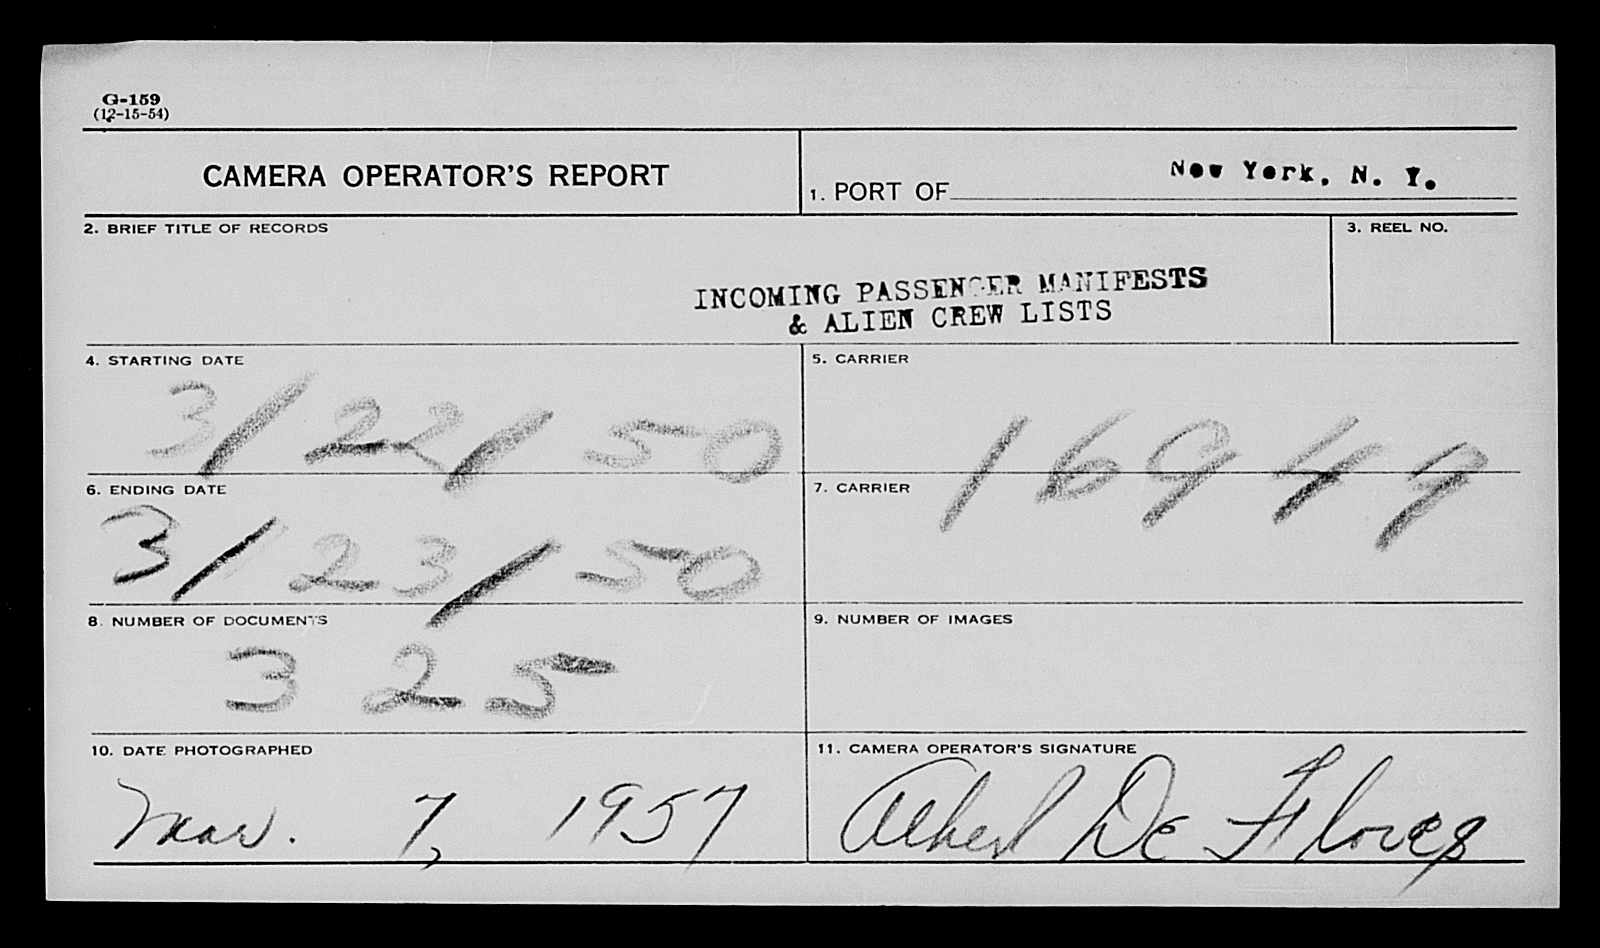 G-159
(12-15-54)
CAMERA OPERATOR'S REPORT
1. PORT OF New York, N. Y.
2. BRIEF TITLE OF RECORDS
3. REEL NO.
INCOMING PASSENGER MANIFESTS
& ALIEN CREW LISTS
4. STARTING DATE
3/22/50
5. CARRIER
16949
6. ENDING DATE
3/23/50
7. CARRIER
8. NUMBER OF DOCUMENTS
325
9. NUMBER OF IMAGES
10. DATE PHOTOGRAPHED
Mar. 7, 1957
11. CAMERA OPERATOR'S SIGNATURE
Albert De Flores